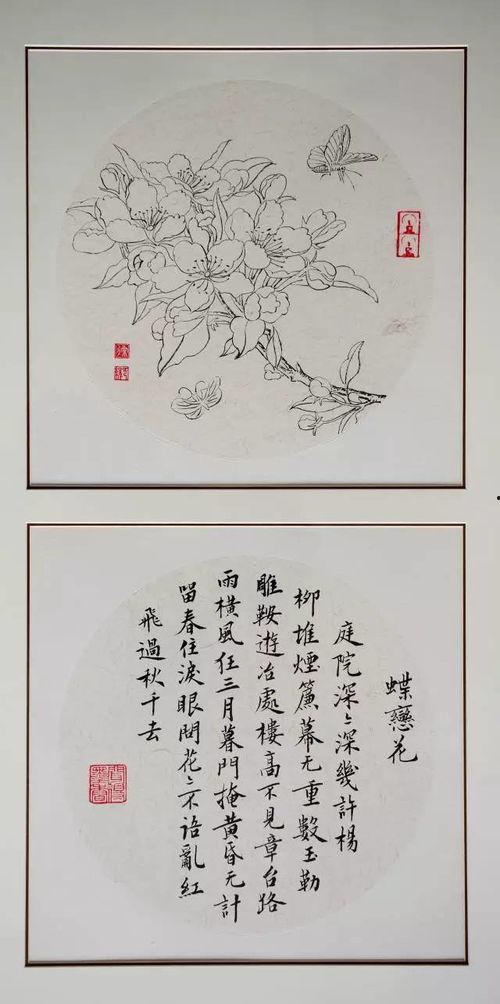 蝶戀花
庭院深〻深幾許楊
柳堆煙簾幕无重數玉勒
雕鞍遊冶處樓高不見章台路
雨橫風狂三月暮門掩黃昏无計
留春住淚眼問花〻不語亂紅
飛過秋千去